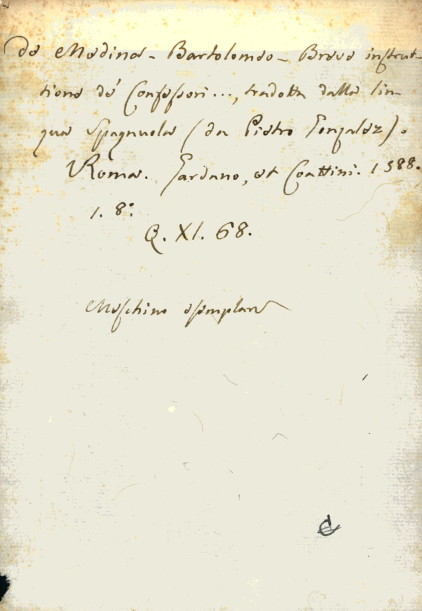 de Medina - Bartolomeo - Breve instrut-
tione de' Confessori..., tradotta dalla lin-
gua Spagnuola (da Pietro Gonzalez).
Roma. Gardano, et Coattini. 1588.
1. 8.°
Q. XI. 68.
Meschino esemplare